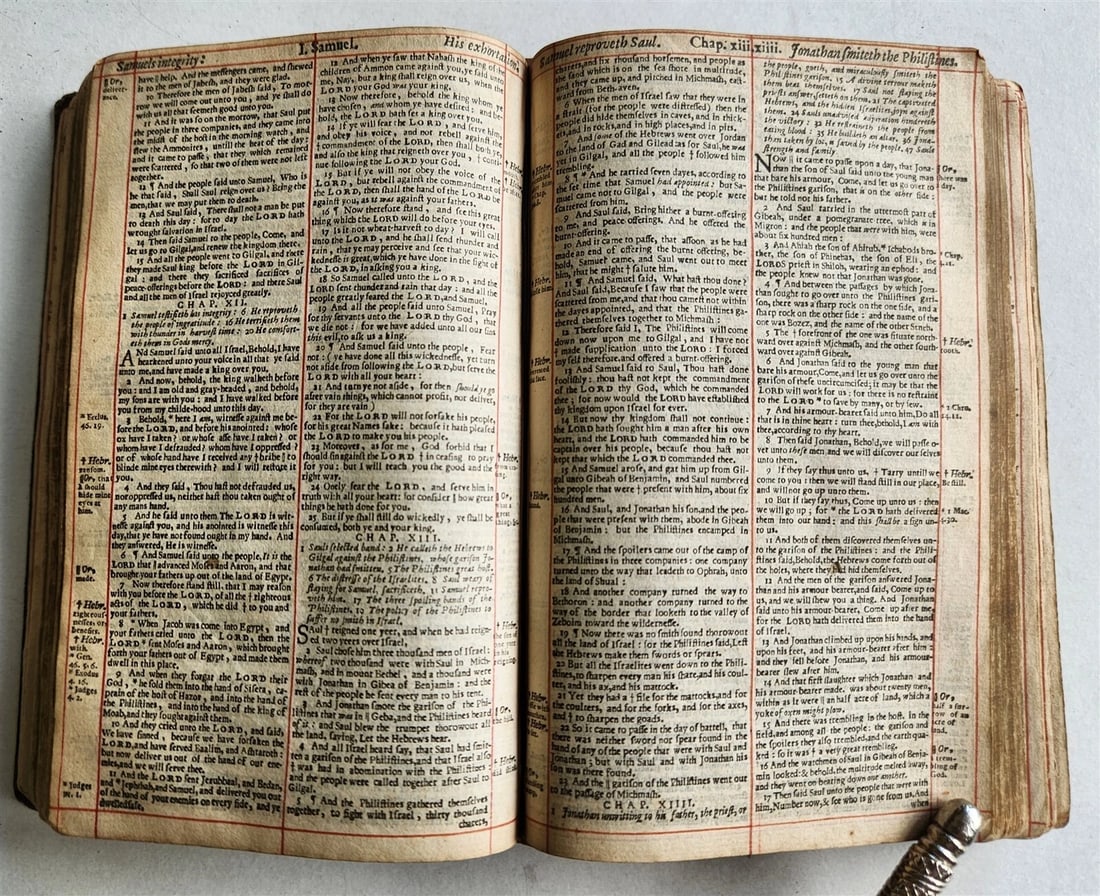 Samuels integrity:
I. Samuel.
His exhortation,
have help. And the messengers came, and shewed
it to the men of Jabesh, and they were glad.
10 Therefore the men of Jabesh said, To mor-
row we will come out unto you, and ye shall do
with us all that seemeth good unto you.
11 And it was so on the morrow, that Saul put
the people in three companies, and they came into
the midst of the host in the morning watch, and
slew the Ammonites, until the heat of the day:
and it came to passe, that they which remained
were scattered, so that two of them were not left
together.
12 ¶ And the people said unto Samuel, Who is
he that said, Shall Saul reign over us? Bring the
men, that we may put them to death.
13 And Saul said, There shall not a man be put
to death this day: for to day the LORD hath
wrought salvation in Israel.
14 Then said Samuel to the people, Come, and
let us go to Gilgal, and renew the kingdom there.
15 And all the people went to Gilgal, and there
they made Saul king before the LORD in Gil-
gal: and there they sacrificed sacrifices of
peace-offerings before the LORD: and there Saul
and all the men of Israel rejoyced greatly.
CHAP. XII.
1 Samuel testifieth his integrity: 6 He reproveth
the people of ingratitude: 16 He terrifieth them
with thunder in harvest time: 20 He comfort-
eth them in Gods mercy.
ANd Samuel said unto all Israel, Behold, I have
hearkened unto your voice in all that ye said
unto me, and have made a king over you.
2 And now, behold, the king walketh before
you: and I am old and gray-headed, and behold,
my sons are with you: and I have walked before
you from my childe-hood unto this day.
3 Behold, * here I am, witnesse against me be-
fore the LORD, and before his anointed: whose
ox have I taken? or whose asse have I taken? or
whom have I defrauded? whom have I oppressed?
or of whose hand have I received any † bribe † to
blinde mine eyes therewith? and I will restore it
you.
4 And they said, Thou hast not defrauded us,
nor oppressed us, neither hast thou taken ought of
any mans hand.
5 And he said unto them The LORD is wit-
nesse against you, and his anointed is witnesse this
day, that ye have not found ought in my hand. And
they answered, He is witnesse.
6 ¶ And Samuel said unto the people, It is the
LORD that advanced Moses and Aaron, and that
brought your fathers up out of the land of Egypt.
7 Now therefore stand still, that I may reason
with you before the LORD, of all the † righteous
acts of the LORD, which he did † to you and
your fathers.
8 * When Jacob was come into Egypt, and
your fathers cried unto the LORD, then the
LORD * sent Moses and Aaron, which brought
forth your fathers out of Egypt, and made them
dwell in this place.
9 And when they forgat the LORD their
God, * he sold them into the hand of Sisera, ca-
ptain of the host of Hazor, and into the hand of
the Philistins, and into the hand of the king of
Moab, and they fought against them.
10 And they cried unto the LORD, and said,
We have sinned, because we have forsaken the
LORD, and have served Baalim, and Ashtaroth:
but now deliver us out of the hand of our ene-
mies, and we will serve thee.
11 And the LORD sent Jerubbaal, and Bedan,
and * Jephthah, and Samuel, and delivered you out
of the hand of your enemies on every side, and ye
dwelled safe.
12 And when ye saw that Nahash the king of the
children of Ammon came against you, ye said unto
me, Nay, but a king shall reign over us, when the
LORD your God was your king.
13 Now therefore, behold the king whom ye
have chosen, and whom ye have desired: and be-
hold, the LORD hath set a king over you.
14 If ye will fear the LORD, and serve him,
and obey his voice, and not rebell against the
† commandment of the LORD, then shall both ye
and also the king that reigneth over you, † conti-
nue following the LORD your God.
15 But if ye will not obey the voice of the
LORD, but rebell against the commandment of
the LORD, then shall the hand of the LORD be
against you, as it was against your fathers.
16 ¶ Now therefore stand, and see this great
thing which the LORD will do before your eyes.
17 Is it not wheat-harvest to day? I will call
unto the LORD, and he shall send thunder and
rain, that ye may perceive and see that your wic-
kednesse is great, which ye have done in the sight of
the LORD, in asking you a king.
18 So Samuel called unto the LORD, and the
LORD sent thunder and rain that day: and all the
people greatly feared the LORD, and Samuel.
19 And all the people said unto Samuel, Pray
for thy servants unto the LORD thy God, that
we die not: for we have added unto all our sins
this evil, to ask us a king.
20 ¶ And Samuel said unto the people, Fear
not: (ye have done all this wickednesse, yet turn
not aside from following the LORD, but serve the
LORD with all your heart:
21 And turn ye not aside, for then should ye go
after vain things, which cannot profit, nor deliver,
for they are vain)
22 For the LORD will not forsake his people,
for his great Names sake: because it hath pleased
the LORD to make you his people.
23 Moreover, as for me, God forbid that I
should sin against the LORD † in ceasing to pray
for you: but I will teach you the good and the
right way.
24 Onely fear the LORD, and serve him in
truth with all your heart: for consider how great
things he hath done for you.
25 But if ye shall still do wickedly, ye shall be
consumed, both ye and your king.
CHAP. XIII.
1 Sauls selected band: 2 He calleth the Hebrews to
Gilgal against the Philistins, whose garison Jo-
nathan had smitten. 5 The Philistins great host.
6 The distresse of the Israelites. 8 Saul weary of
staying for Samuel, sacrificeth. 11 Samuel repro-
veth him. 17 The three spoiling bands of the
Philistins. 19 The policy of the Philistins to
suffer no smith in Israel.
SAul † reigned one year, and when he had reign-
ed two years over Israel,
2 Saul chose him three thousand men of Israel:
whereof two thousand were with Saul in Mich-
mash, and in mount Bethel, and a thousand were
with Jonathan in Gibea of Benjamin: and the
rest of the people he sent every man to his tent.
3 And Jonathan smote the garison of the Phi-
listins that was in Geba, and the Philistins heard
of it: and Saul blew the trumpet thorowout all
the land, saying, Let the Hebrews hear.
4 And all Israel heard say, that Saul had smit-
ten a garison of the Philistins, and that Israel also
† was had in abomination with the Philistins:
and the people were called together after Saul to
Gilgal.
5 ¶ And the Philistins gathered themselves
together, to fight with Israel, thirty thousand
charets,
Or,
deliver-
ance.
* Ecclus.
46. 19.
† Hebr.
ransom.
Or, that
I should
hide mine
eyes at
him.
Or,
made.
† Hebr.
righteous-
nesses, or,
benefits.
† Hebr.
with.
* Gen.
46. 5, 6.
* Exodus
4. 16.
* Judges
4. 2.
* Judges
11. 1.
Samuel reproveth Saul.
Chap. xiii. xiiii.
Jonathan smiteth the Philistines.
charets, and six thousand horsemen, and people as
the sand which is on the sea shore in multitude,
and they came up, and pitched in Michmash, east-
ward from Beth-aven.
6 When the men of Israel saw that they were in
a strait, (for the people were distressed) then the
people did hide themselves in caves, and in thick-
ets, and in rocks, and in high places, and in pits.
7 And some of the Hebrews went over Jordan
to the land of Gad and Gilead: as for Saul, he was
yet in Gilgal, and all the people † followed him
trembling.
8 ¶ * And he tarried seven dayes, according to
the set time that Samuel had appointed: but Sa-
muel came not to Gilgal, and the people were
scattered from him.
9 And Saul said, Bring hither a burnt-offering
to me, and peace offerings. And he offered the
burnt-offering.
10 And it came to passe, that assoon as he had
made an end of offering the burnt offering, be-
hold, Samuel came, and Saul went out to meet
him, that he might † salute him.
11 ¶ And Samuel said, What hast thou done?
And Saul said, Because I saw that the people were
scattered from me, and that thou camest not within
the dayes appointed, and that the Philistines ga-
thered themselves together to Michmash:
12 Therefore said I, The Philistins will come
down now upon me to Gilgal, and I have not
† made supplication unto the LORD: I forced
my self therefore, and offered a burnt-offering.
13 And Samuel said to Saul, Thou hast done
foolishly: thou hast not kept the commandment
of the LORD thy God, which he commanded
thee: for now would the LORD have established
thy kingdom upon Israel for ever.
14 But now thy kingdom shall not continue:
the LORD hath sought him a man after his own
heart, and the LORD hath commanded him to be
captain over his people, because thou hast not
kept that which the LORD commanded thee.
15 And Samuel arose, and gat him up from Gil-
gal unto Gibeah of Benjamin, and Saul numbered
the people that were † present with him, about six
hundred men.
16 And Saul, and Jonathan his son, and the peo-
ple that were present with them, abode in Gibeah
of Benjamin: but the Philistins encamped in
Michmash.
17 ¶ And the spoilers came out of the camp of
the Philistins in three companies: one company
turned unto the way that leadeth to Ophrah, unto
the land of Shual:
18 And another company turned the way to
Bethoron: and another company turned to the
way of the border that looketh to the valley of
Zeboim toward the wildernesse.
19 ¶ Now there was no smith found thorowout
all the land of Israel: for the Philistins said, Lest
the Hebrews make them swords or spears.
20 But all the Israelites went down to the Phili-
stins, to sharpen every man his share, and his coul-
ter, and his ax, and his mattock.
21 Yet they had a † file for the mattocks, and for
the coulters, and for the forks, and for the axes,
and † to sharpen the goads.
22 So it came to passe in the day of battell, that
there was neither sword nor spear found in the
hand of any of the people that were with Saul and
Jonathan; but with Saul and with Jonathan his
son was there found.
23 And the garison of the Philistins went out
to the passage of Michmash.
CHAP. XIIII.
1 Jonathan unwitting to his father, the priest, or
the people, goeth, and miraculously smiteth the
Philistines garison. 15 A divine terrour maketh
them beat themselves. 17 Saul not staying the
priests answer, setteth on them. 21 The captivated
Hebrews, and the hidden Israelites, joyn against
them. 24 Sauls unadvised adjuration hindereth
the victory: 32 He restraineth the people from
eating blood: 35 He buildeth an altar. 36 Jona-
than taken by lot, is saved by the people. 47 Sauls
strength and family.
NOw it came to passe upon a day, that Jona-
than the son of Saul said unto the young man
that bare his armour, Come, and let us go over to
the Philistines garison, that is on the other side:
but he told not his father.
2 And Saul tarried in the uttermost part of
Gibeah, under a pomegranate tree, which is in
Migron: and the people that were with him, were
about six hundred men:
3 And Ahiah the son of Ahitub, * Ichabods bro-
ther, the son of Phinehas, the son of Eli, the
LORDS priest in Shiloh, wearing an ephod: and
the people knew not that Jonathan was gone.
4 ¶ And between the passages by which Jona-
than sought to go over unto the Philistins gari-
son, there was a sharp rock on the one side, and a
sharp rock on the other side: and the name of the
one was Bozez, and the name of the other Seneh.
5 The † forefront of the one was situate north-
ward over against Michmash, and the other south-
ward over against Gibeah.
6 And Jonathan said to the young man that
bare his armour, Come, and let us go over unto the
garison of these uncircumcised; it may be that the
LORD will work for us: for there is no restraint
to the LORD * to save by many, or by few.
7 And his armour-bearer said unto him, Do all
that is in thine heart: turn thee, behold, I am with
thee, according to thy heart.
8 Then said Jonathan, Behold, we will passe o-
ver unto these men, and we will discover our selves
unto them.
9 If they say thus unto us, † Tarry untill we
come to you: then we will stand still in our place,
and will not go up unto them.
10 But if they say thus, Come up unto us: then
we will go up; for * the LORD hath delivered
them into our hand: and this shall be a sign un-
to us.
11 And both of them discovered themselves un-
to the garison of the Philistines: and the Phili-
stines said, Behold, the Hebrews come forth out of
the holes, where they had hid themselves.
12 And the men of the garison answered Jona-
than and his armour bearer, and said, Come up to
us, and we will shew you a thing. And Jonathan
said unto his armour-bearer, Come up after me,
for the LORD hath delivered them into the hand
of Israel.
13 And Jonathan climbed up upon his hands, and
upon his feet, and his armour-bearer after him:
and they fell before Jonathan, and his armour-
bearer slew after him.
14 And that first slaughter which Jonathan and
his armour-bearer made, was about twenty men,
within as it were an half acre of land, which a
yoke of oxen might plow.
15 And there was trembling in the host, in the
field, and among all the people: the garison and
the spoilers they also trembled, and the earth qua-
ked: so it was † a very great trembling.
16 And the watchmen of Saul in Gibeah of Benja-
min looked: & behold, the multitude melted away,
and they went on beating down one another.
17 Then said Saul unto the people that were with
him, Number now, & see who is gone from us. And
when
Or,
there was
a day.
* Chap.
4. 21.
† Hebr.
tooth.
* 2 Chro.
14. 11.
† Hebr.
Be still.
* 1 Mac.
4. 30.
Or,